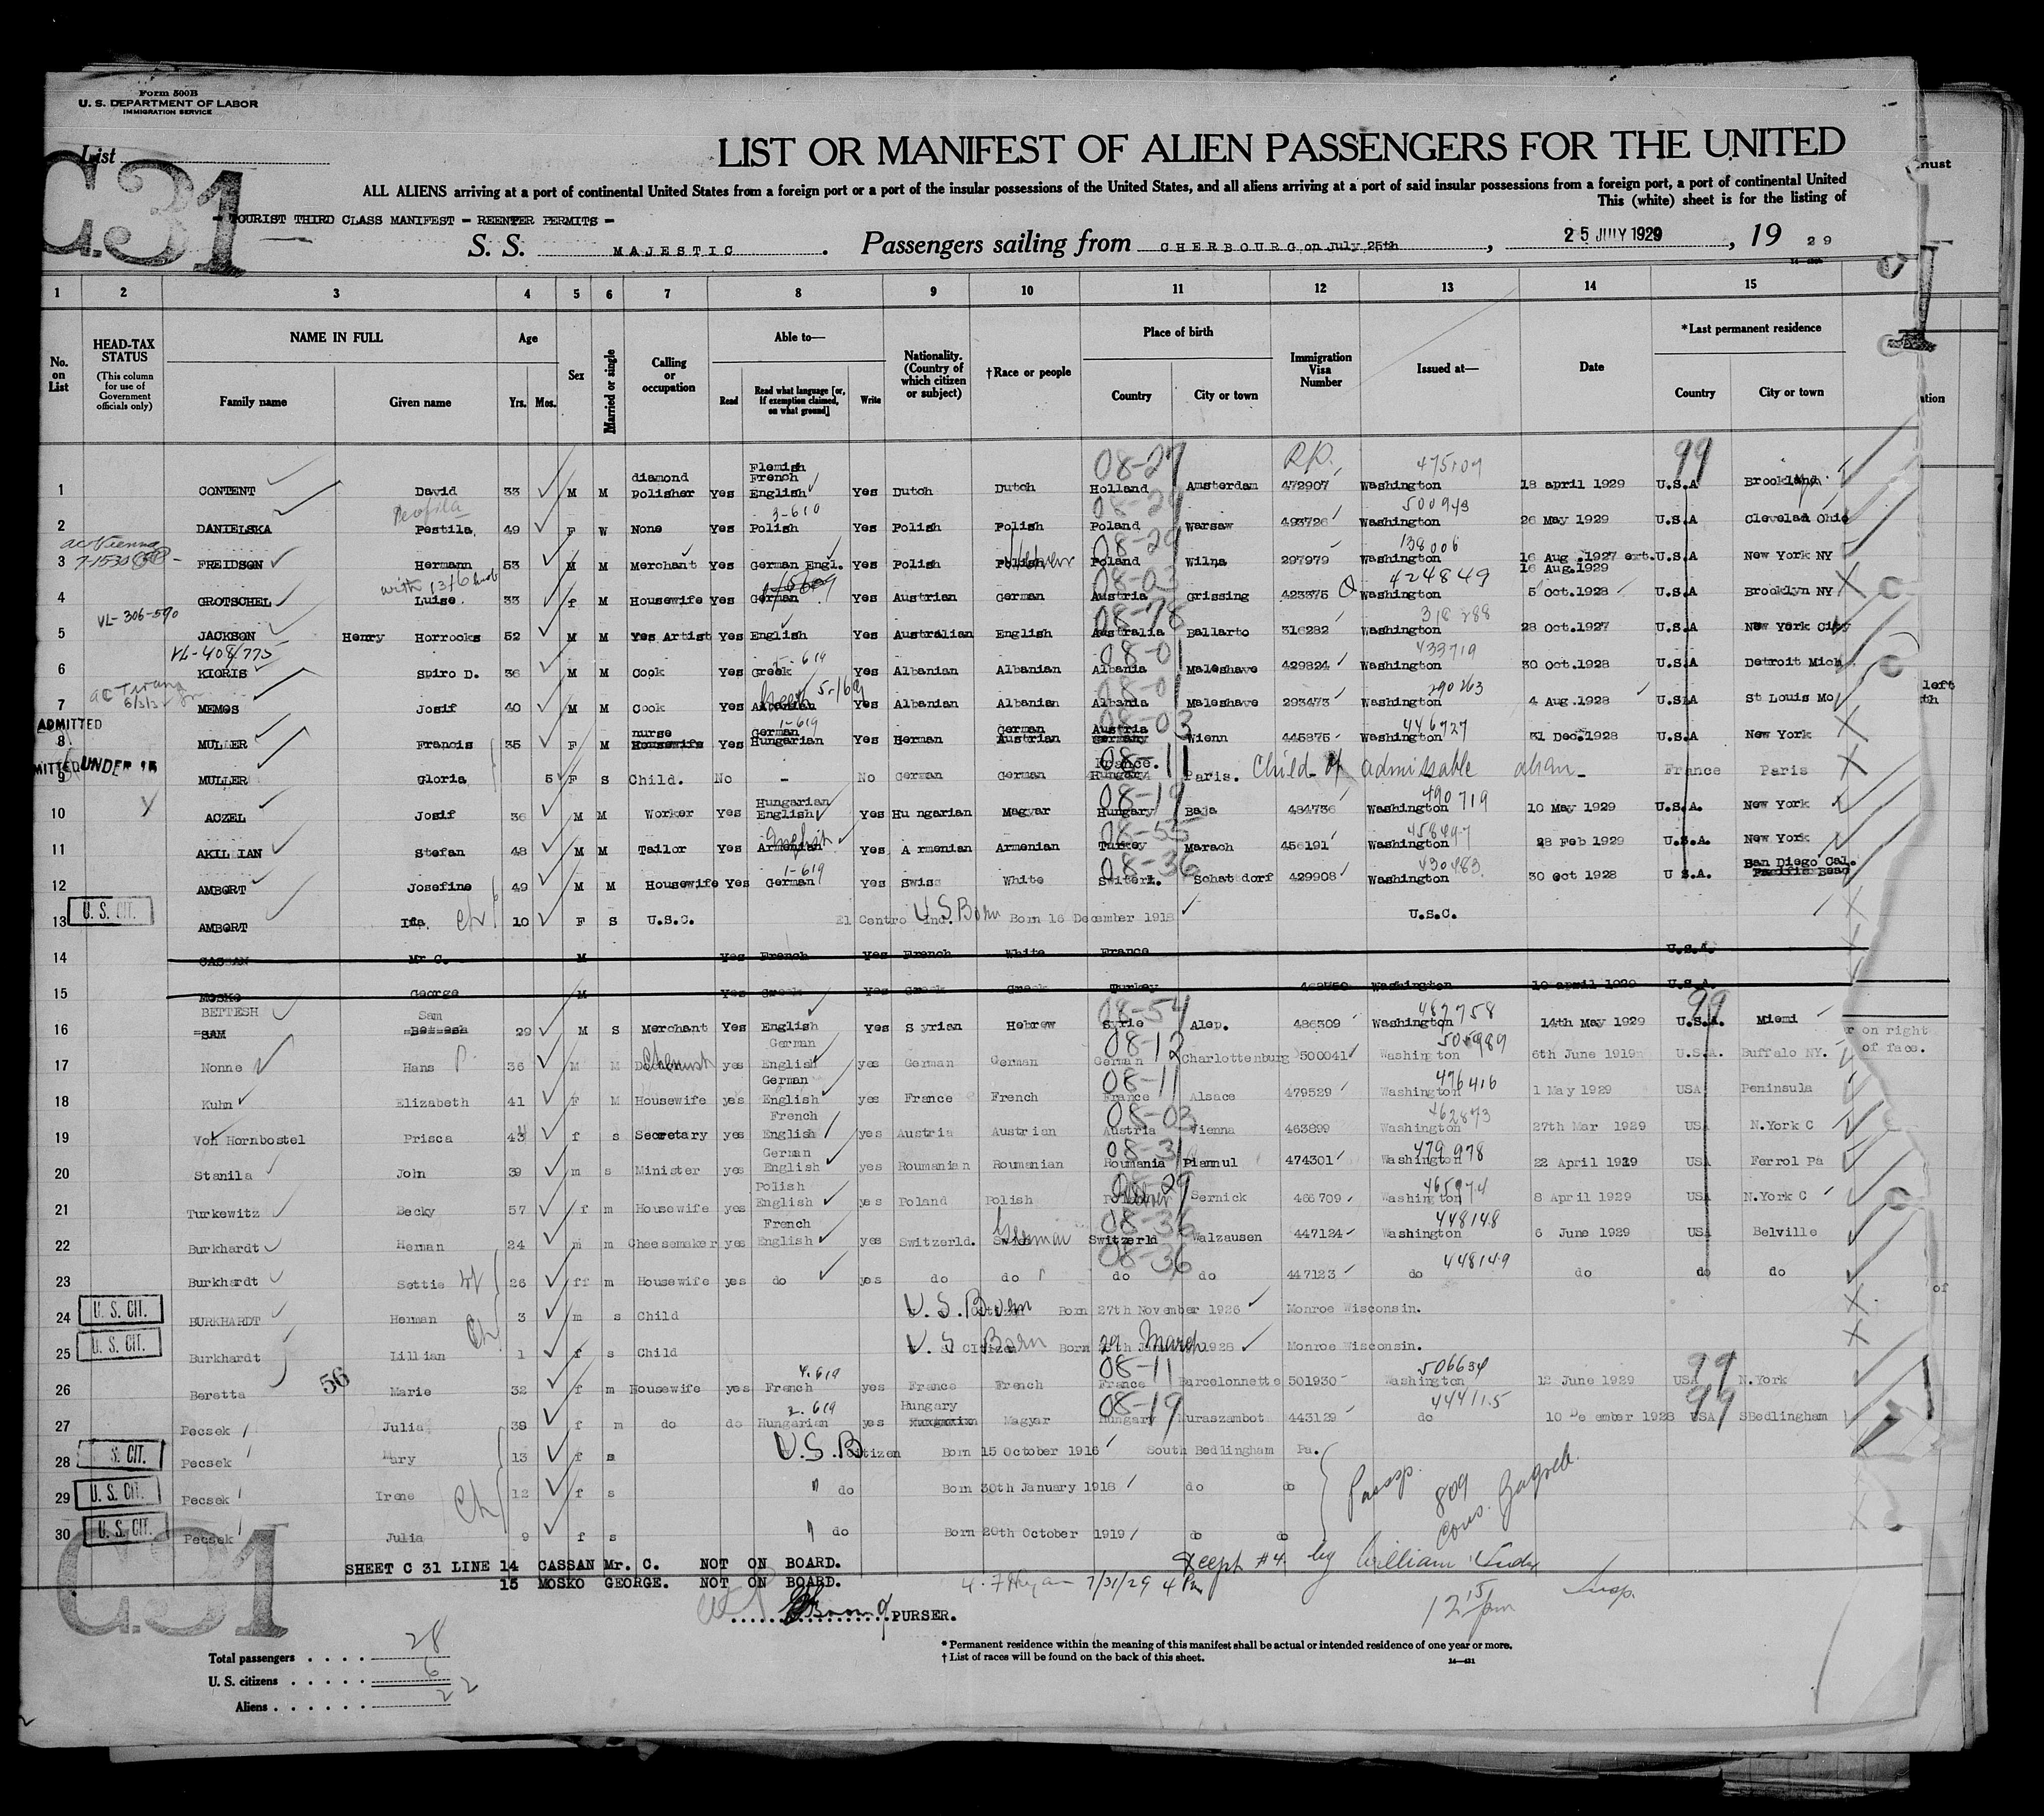 Form 500B
U. S. DEPARTMENT OF LABOR
IMMIGRATION SERVICE
List
C31
LIST OR MANIFEST OF ALIEN PASSENGERS FOR THE UNITED
ALL ALIENS arriving at a port of continental United States from a foreign port or a port of the insular possessions of the United States, and all aliens arriving at a port of said insular possessions from a foreign port, a port of continental United
This (white) sheet is for the listing of
TOURIST THIRD CLASS MANIFEST - REENTER PERMITS -
S. S. MAJESTIC. Passengers sailing from CHERBOURG on July 25th, 25 JULY 1929, 19 29
1 2 3 4 5 6 7 8 9 10 11 12 13 14 15
No. on List
HEAD-TAX STATUS (This column for use of Government officials only)
NAME IN FULL
Family name Given name
Age
Yrs. Mos.
Sex
Married or single
Calling or occupation
Able to—
Read Read what language [or, if exemption claimed, on what ground] Write
Nationality. (Country of which citizen or subject)
†Race or people
Place of birth
Country City or town
Immigration Visa Number
Issued at—
Date
*Last permanent residence
Country City or town
1 CONTENT David 33 M M diamond Polisher Yes Flemish French English Yes Dutch Dutch 08-27 Holland Amsterdam R.P. 472907 Washington 475107 18 april 1929 99 U.S.A Brooklyn
2 DANIELSKA Pestila 49 F W None Yes Polish 3-610 Yes Polish Polish Poland Warsaw 493726 Washington 500943 26 May 1929 U.S.A Clevelad Ohio
3 FREIDSON Hermann 53 M M Merchant Yes German Engl. Yes Polish Polish Hebrew 08-29 Poland Wilna 297979 Washington 138006 16 Aug .1927 ext. 16 Aug.1929 U.S.A New York NY
4 GROTSCHEL Luise 33 f M Housewife Yes German Yes Austrian German 08-03 Austria Grissing 423375 Washington 424849 5 Oct.1928 U.S.A Brooklyn NY
VL-306-590
5 JACKSON Henry Horrooks 52 M M Yes Artist Yes English Yes Australian English 08-78 Australia Ballarto 316282 Washington 318288 28 Oct.1927 U.S.A New York City
VL-408/775
6 KIORIS Spiro D. 36 M M Cook Yes Greek Yes Albanian Albanian 08-01 Albania Maleshave 429824 Washington 433719 30 Oct.1928 U.S.A Detroit Mich
7 MEMOS Josif 40 M M Cook Yes Albanian Greek Yes Albanian Albanian 08-01 Albania Maleshave 293473 Washington 290263 4 Aug.1928 U.S.A St Louis Mo
ADMITTED
8 MULLER Francis 35 F M nurse Housewife Yes German Hungarian 1-619 Yes Herman German Austrian 08-03 Austria Germany Wienn 445875 Washington 446727 31 Dec.1928 U.S.A New York
UNDER 15
9 MULLER Gloria 5 F S Child. No - No German German 08-11 France. Hungary Paris. Child of admissable alien France Paris
10 ACZEL Josif 36 M M Worker Yes Hungarian English Yes Hu ngarian Magyar 08-19 Hungary Baja 484736 Washington 490719 10 May 1929 U.S.A. New York
11 AKIL IAN Stefan 48 M M Tailor Yes Armenian English Yes A rmenian Armenian 08-55 Turkey Marach 456191 Washington 28 Feb 1929 U.S.A. New York
12 AMBORT Josefine 49 M M Housewife Yes German 1-619 Yes Swiss White 08-36 Switerl. Schat dorf 429908 Washington 430483 30 oct 1928 U S.A. San Diego Cal. Pacific Beac
13 U. S. CIT. AMBORT Ida 10 F S U.S.C. El Centro U.S. Born Born 16 December 1918 U.S.C.
14 CASSAN Mr C. M Yes French Yes French White France U.S.A.
15 MOSKO George M Yes Greek Yes Greek Greek Turkey 462750 Washington 10 april 1929 U.S.A.
16 BETTESH SAM Sam Bettesh 29 M S Merchant Yes English Yes S yrian Hebrew 08-54 Syrie Alep. 486309 Washington 487758 14th May 1929 99 U.S.A. Miemi
17 Nonne Hans P. 36 M M Chemist yes German English yes German German 08-12 German Charlottenburg 500041 Washington 505989 6th June 1919 U.S.A. Buffalo NY.
18 Kuhn Elizabeth 41 F M Housewife yes German English yes France French 08-11 France Alsace 479529 Washington 476416 1 May 1929 USA Peninsula
19 Von Hornbostel Prisca 43 f s Secretary yes French English yes Austria Austrian 08-03 Austria Vienna 463899 Washington 462873 27th Mar 1929 USA N.York C
20 Stanila John 39 m s Minister yes German English yes Roumanian Roumanian 08-31 Roumania Piannul 474301 Washington 479978 22 April 1929 USA Ferrol Pa
21 Turkewitz Becky 57 f m Housewife yes Polish English yes Poland Polish Sernick 466709 Washington 465974 8 April 1929 USA N.York C
22 Burkhardt Heman 24 m m Cheesemaker yes French English yes Switzerld. Swiss German 08-36 Switzerld Walzausen 447124 Washington 448148 6 June 1929 USA Belville
23 Burkhardt Settie wf 26 ff m Housewife yes do yes do do 08-36 do do 447123 do 448149 do do do
24 U. S. CIT. BURKHARDT Heman Ch 3 m s Child U.S. Born Citizen Born 27th November 1926 Monroe Wisconsin.
25 U. S. CIT. Burkhardt Lillian 1 f s Child U S Born Citizen Born 29 March 1928 Monroe Wisconsin.
26 Beretta 56 Marie 32 f m Housewife yes French 4-619 yes France French 08-11 France Barcelonnette 501930 Washington 506634 12 June 1929 99 USA N.York
27 Pecsek Julia 38 f m do do Hungarian 2-619 yes Hungary Hungarian Magyar 08-19 Hungary Muraszambot 443129 do 444115 10 De ember 1928 99 USA SBedlingham
28 S. CIT. Pecsek Mary 13 f s U.S.B Citizen Born 15 October 1916 South Bedlingham Pa.
29 U. S. CIT. Pecsek Irene Ch 12 f s " do Born 30th January 1918 do do
30 U. S. CIT. Pecsek Julia 9 f s " do Born 20th October 1919 do do
Passp. 809 Cons. Zagreb.
SHEET C 31 LINE 14 CASSAN Mr. C. NOT ON BOARD.
15 MOSKO GEORGE. NOT ON BOARD.
Xcept #4 by William
7/31/29 4 Pm
12 15/pm Insp.
PURSER.
C31
Total passengers 28
U. S. citizens 6
Aliens 22
* Permanent residence within the meaning of this manifest shall be actual or intended residence of one year or more.
† List of races will be found on the back of this sheet.
14—431